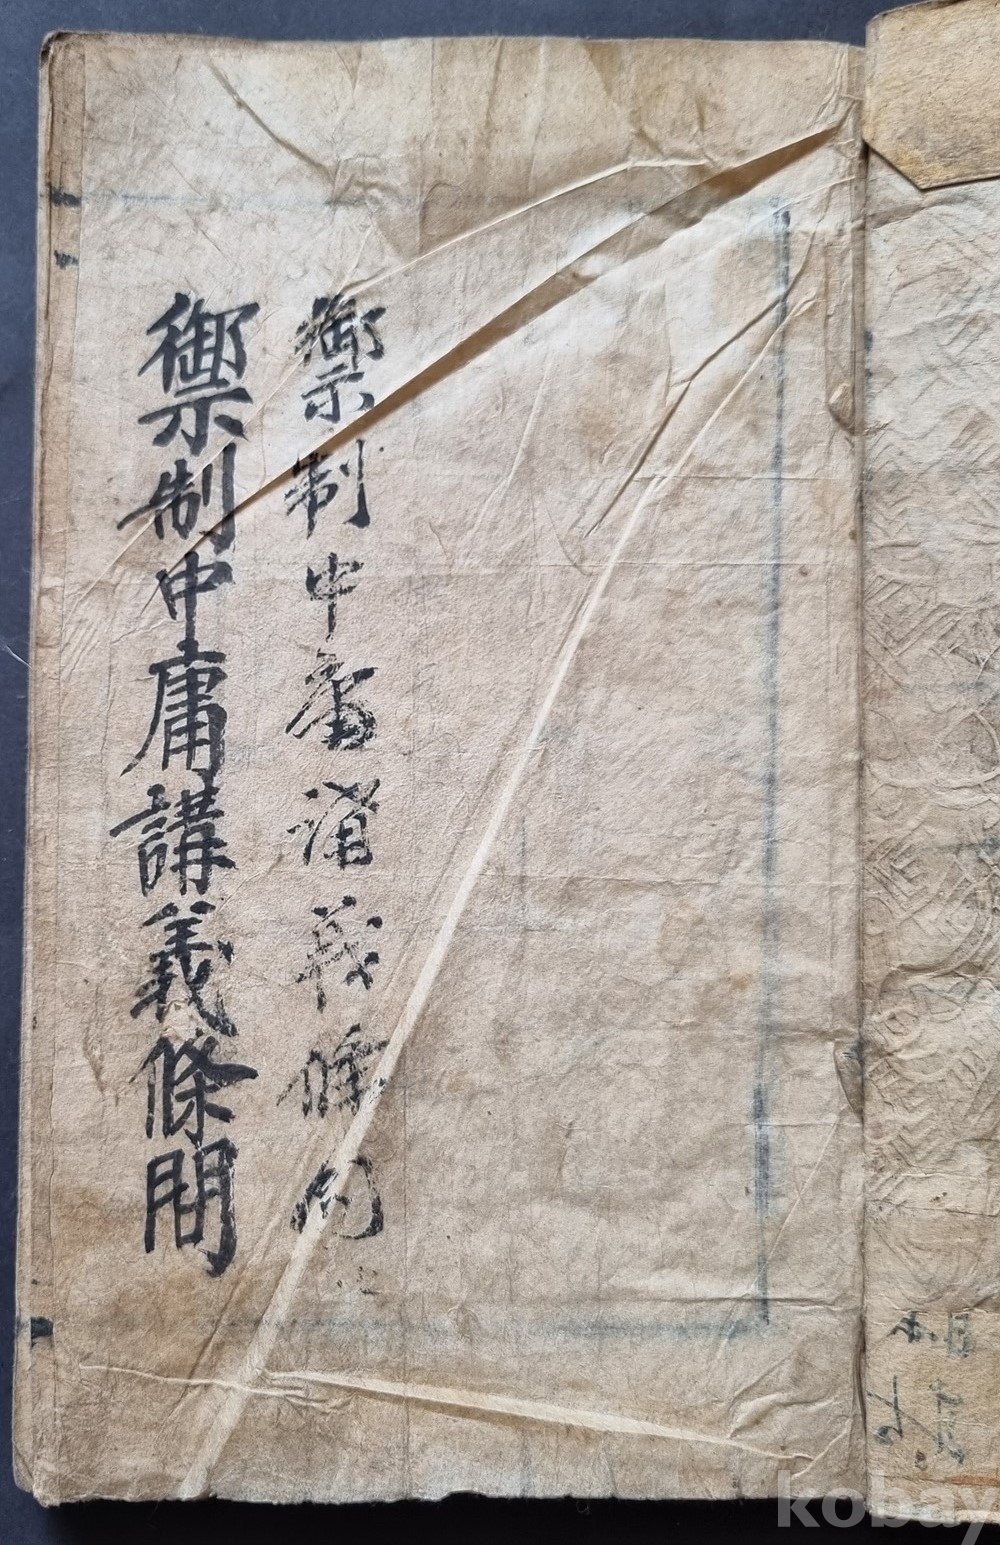 御制中庸講義條問
御制中庸講義條問
kobay